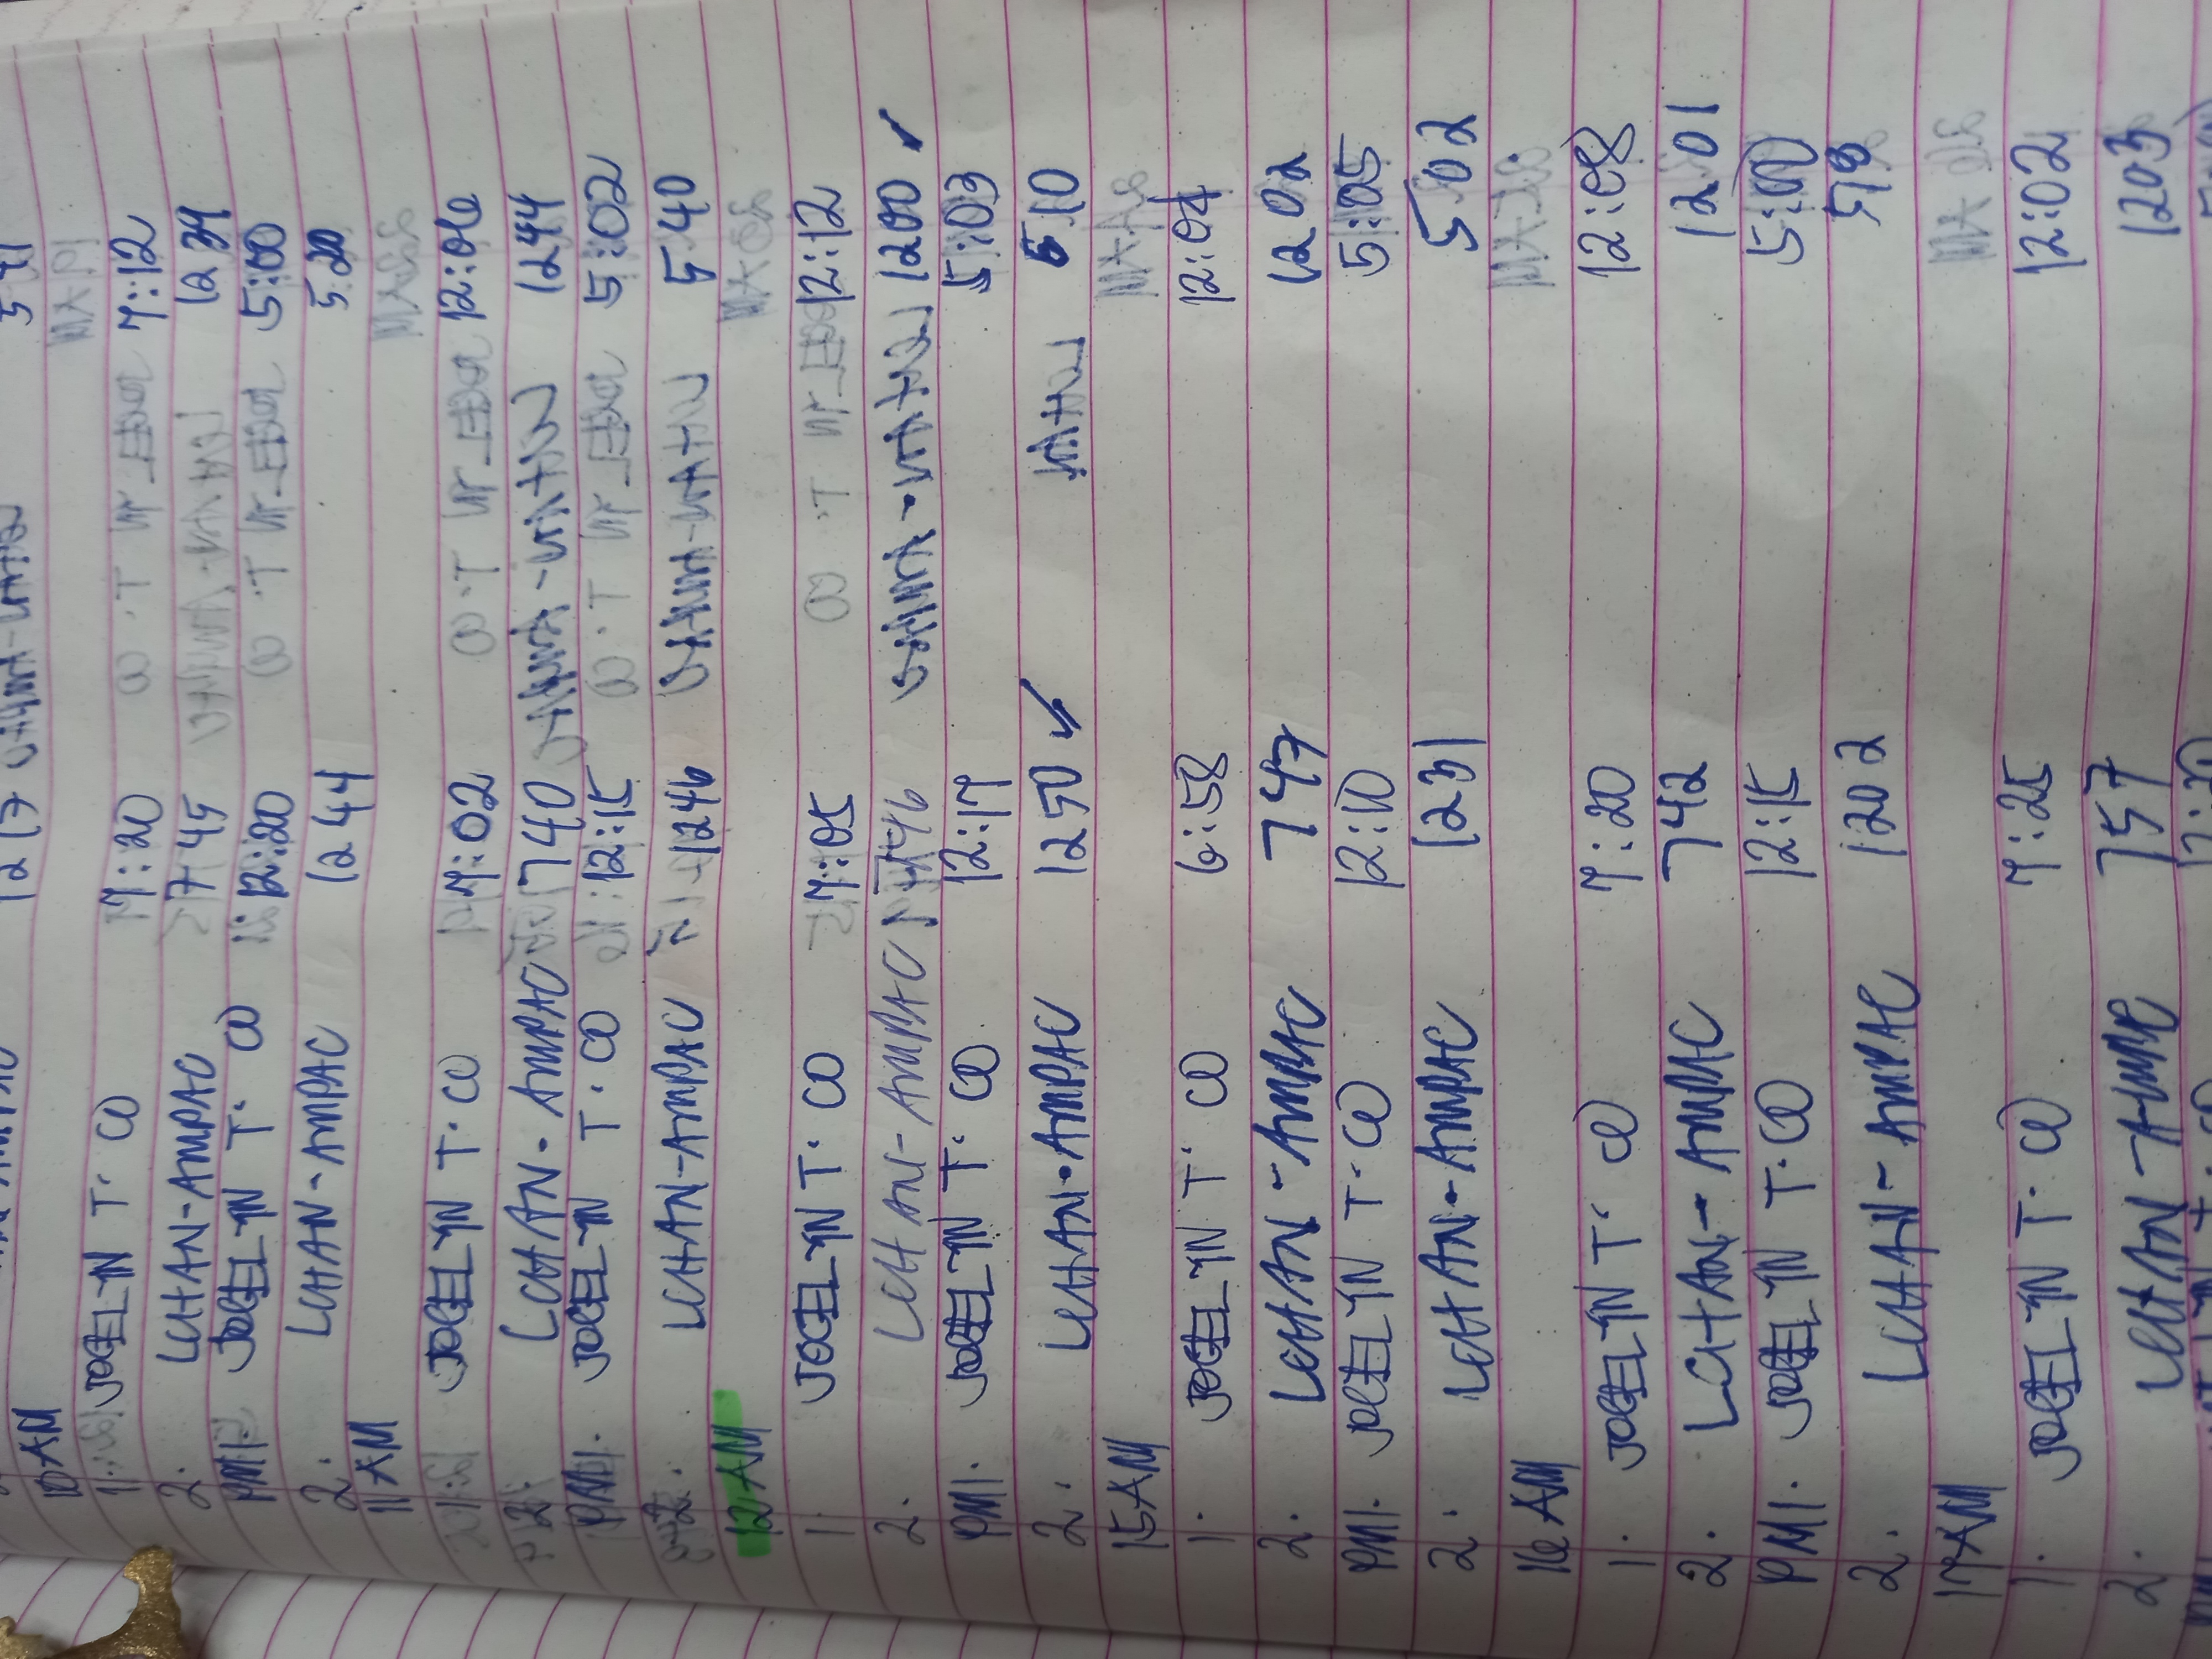 10 AM
1. JOCELYN T. CO 7:20 7:12
2. LCHAN-AMPAC 7 45 12 34
PM 1. JOCELYN T. CO 12:20 5:00
2. LCHAN-AMPAC 12 44 5 20
11 AM
JOCELYN T. CO 7:02 12:06
2. LCHAN-AMPAC 7 40 12 44
PM 1. JOCELYN T. CO 12:15 5:02
2. LCHAN-AMPAC 12 46 5 40
12 AM
1. JOCELYN T. CO 7:05 12:12
2. LCHAN-AMPAC 7 46 12 00 ✓
PM 1. JOCELYN T. CO 12:17 5:03
2. LCHAN-AMPAC 12 50 ✓ 5 10
15 AM
1. JOCELYN T. CO 6:58 12:04
2. LCHAN-AMPAC 7 47 12 02
PM 1. JOCELYN T. CO 12:10 5:05
2. LCHAN-AMPAC 12 31 5 02
16 AM
1. JOCELYN T. CO 7:20 12:08
2. LCHAN-AMPAC 7 42 12 01
PM 1. JOCELYN T. CO 12:15 5:00
2. LCHAN-AMPAC 12 02
17 AM
1. JOCELYN T. CO 7:25 12:02
2. LCHAN-AMPAC 7 57 12 03